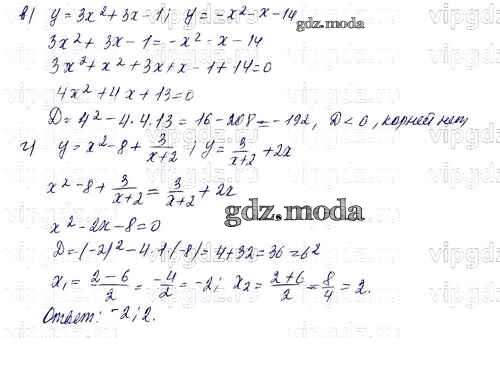 в) y = 3x² + 3x - 1; y = -x² - x - 14
3x² + 3x - 1 = -x² - x - 14
3x² + x² + 3x + x - 1 + 14 = 0
4x² + 4x + 13 = 0
D = 4² - 4·4·13 = 16 - 208 = -192, D < 0, корней нет
г) y = x² - 8 + 3/(x+2); y = 3/(x+2) + 2x
x² - 8 + 3/(x+2) = 3/(x+2) + 2x
gdz.moda
x² - 2x - 8 = 0
D = (-2)² - 4·1·(-8) = 4 + 32 = 36 = 6²
x₁ = (2-6)/2 = -4/2 = -2; x₂ = (2+6)/2 = 8/4 = 2.
Ответ: -2; 2.
gdz.moda
vipgdz